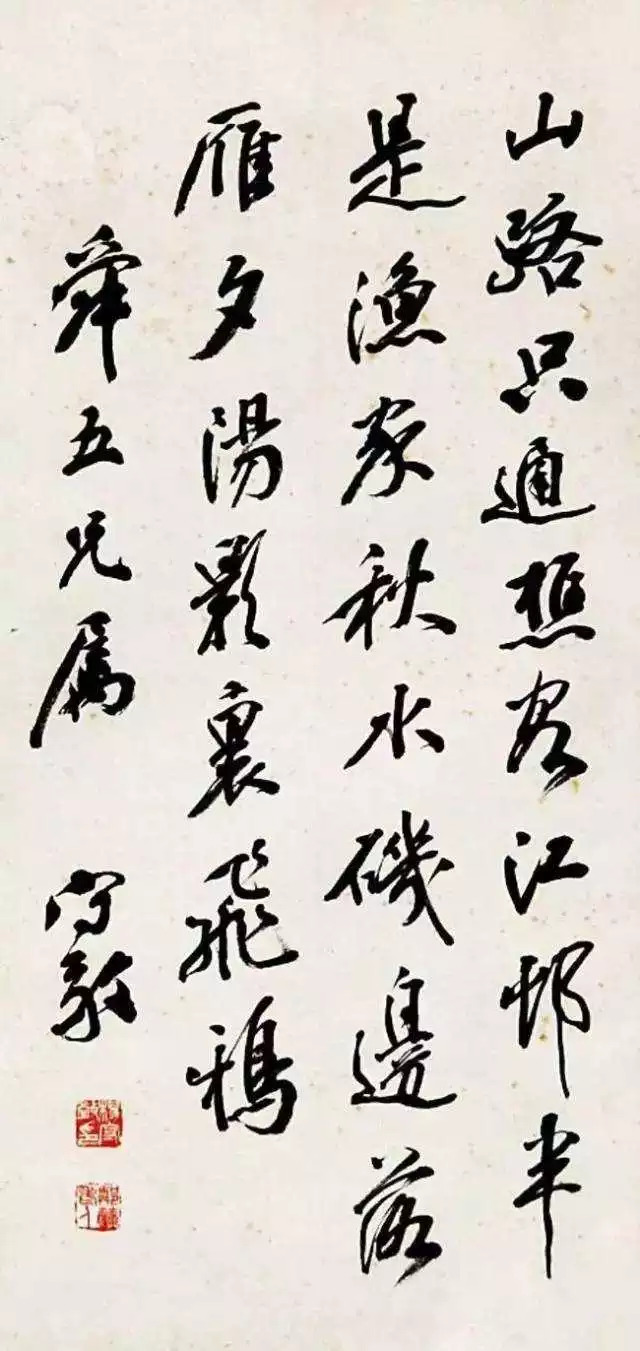 山路只通樵客江邨半
是漁家秋水磯邊落
雁夕陽影裏飛鴉
舜五兄属 守敬